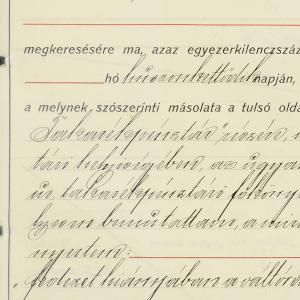 megkeresésére ma, azaz egyezerkilenczszáz
hó huszonkettődik napján,
a melynek szószerinti másolata a tulsó olda
Takarékpénztár" részére,
tári helyiségében, az ugyan
úr, takarékpénztári főkönyv
bemutattam, a mire
nyertem:
fedezet hiányában a váltóra